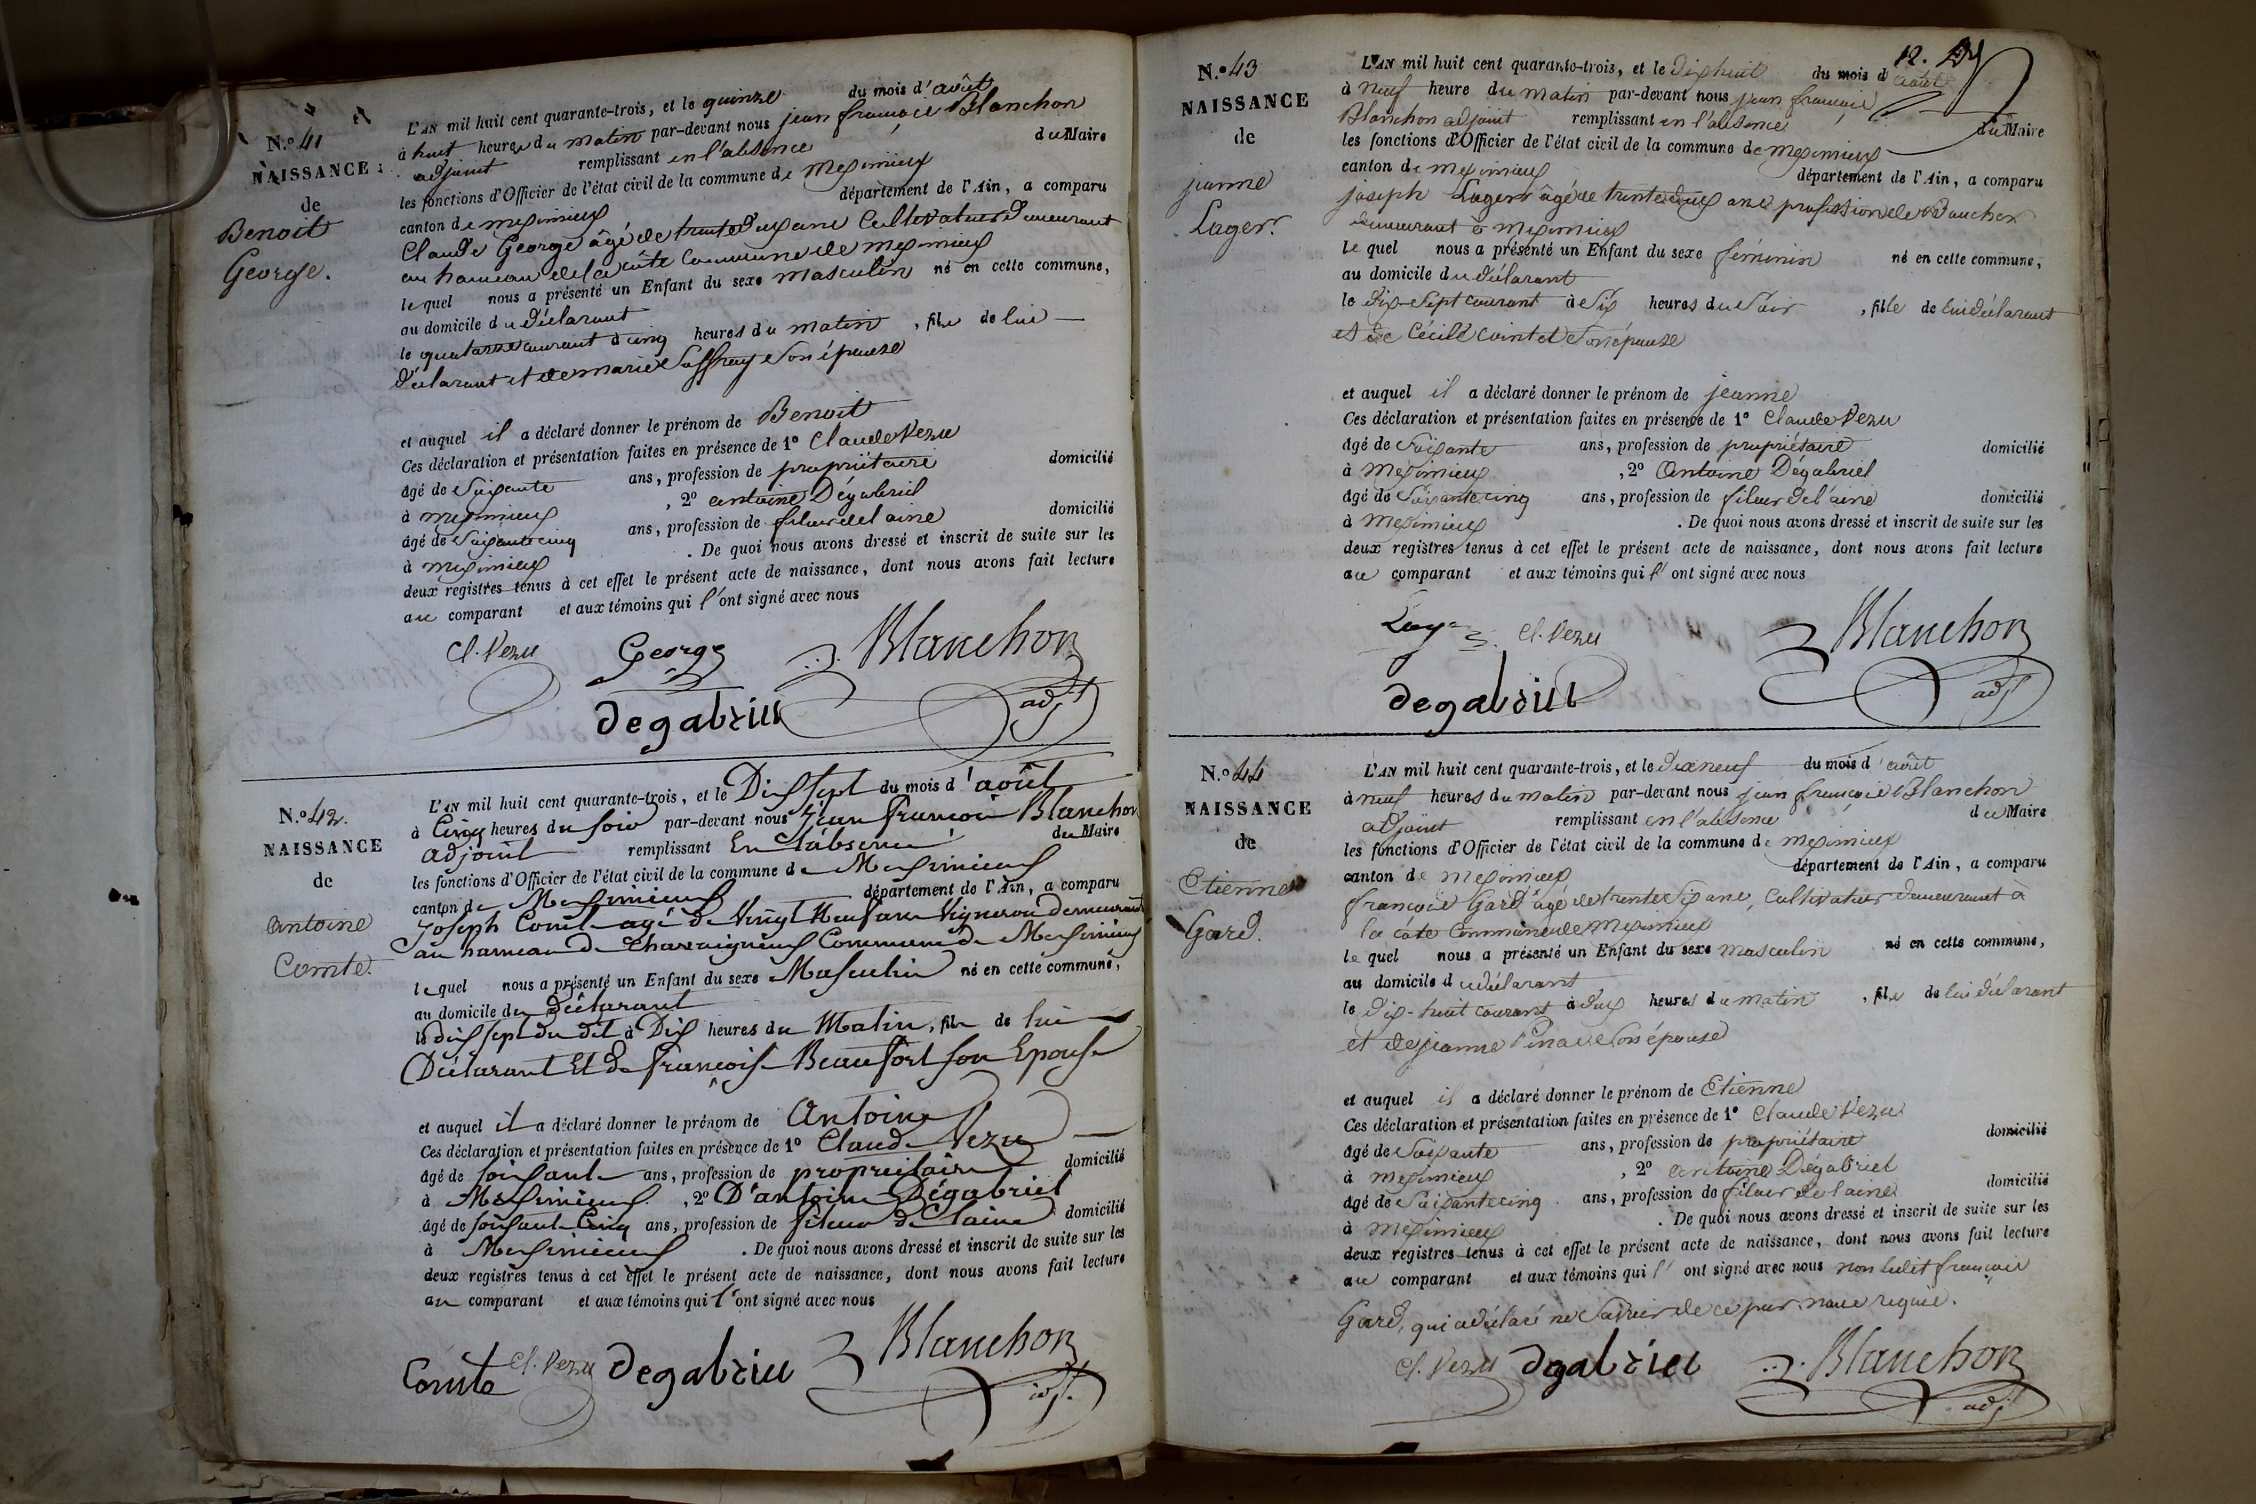 N.° 41
NAISSANCE
de
Benoit
George.
L'AN mil huit cent quarante-trois, et le quinze du mois d'août
à huit heures du matin par-devant nous jean françois Blanchon
adjoint remplissant en l'absence du Maire
les fonctions d'Officier de l'état civil de la commune de meximieux
canton de meximieux département de l'Ain, a comparu
Claude George âgé de trente deux ans Cultivateur demeurant
au hameau de la côte Commune de meximieux
lequel nous a présenté un Enfant du sexe masculin né en cette commune,
au domicile du déclarant
le quatorze courant à cinq heures du matin, fils de lui
déclarant et de marie Soffray Son épouse
et auquel il a déclaré donner le prénom de Benoit
Ces déclaration et présentation faites en présence de 1° Claude Vezu
âgé de Soixante ans, profession de propriétaire domicilié
à meximieux, 2° antoine Dégabriel
âgé de Soixante cinq ans, profession de fileur de laine domicilié
à meximieux. De quoi nous avons dressé et inscrit de suite sur les
deux registres tenus à cet effet le présent acte de naissance, dont nous avons fait lecture
au comparant et aux témoins qui l'ont signé avec nous
Cl. Vezu George Blanchon
degabriel adjt
N.° 42.
NAISSANCE
de
antoine
Comte.
L'AN mil huit cent quarante-trois, et le Dix sept du mois d'août
à Cinq heures du soir par-devant nous Jean françois Blanchon
adjoint remplissant En l'absence du Maire
les fonctions d'Officier de l'état civil de la commune de Meximieux
canton de Meximieux département de l'Ain, a comparu
Joseph Comte agé de Vingt Neuf ans Vigneron demeurant
au hameau de Charaigneux Commune de Meximieux
lequel nous a présenté un Enfant du sexe Masculin né en cette commune,
au domicile du Déclarant
le dix sept du dit à Dix heures du Matin, fils de lui
Déclarant Et de françoise Beaufort son Epouse
et auquel il a déclaré donner le prénom de Antoine
Ces déclaration et présentation faites en présence de 1° Claude Vezu
âgé de soixante ans, profession de propriétaire domicilié
à Meximieux, 2° D'antoine Dégabriel
âgé de soixante Cinq ans, profession de fileur de laine domicilié
à Meximieux. De quoi nous avons dressé et inscrit de suite sur les
deux registres tenus à cet effet le présent acte de naissance, dont nous avons fait lecture
au comparant et aux témoins qui l'ont signé avec nous
Comte Cl. Vezu degabriel Blanchon
adjt.
12.
N.° 43
NAISSANCE
de
jeanne
Lager.
L'AN mil huit cent quarante-trois, et le dix huit du mois d'août
à neuf heure du matin par-devant nous jean françois
Blanchon adjoint remplissant en l'absence du Maire
les fonctions d'Officier de l'état civil de la commune de meximieux
canton de meximieux département de l'Ain, a comparu
joseph Lager âgé de trente deux ans, profession de Boucher
demeurant à meximieux
lequel nous a présenté un Enfant du sexe féminin né en cette commune,
au domicile du déclarant
le dix-sept courant à Six heures du Soir, fille de lui déclarant
et de Cécile Cointet Son épouse
et auquel il a déclaré donner le prénom de jeanne
Ces déclaration et présentation faites en présence de 1° Claude Vezu
âgé de Soixante ans, profession de propriétaire domicilié
à meximieux, 2° Antoine Dégabriel
âgé de Soixante cinq ans, profession de fileur de laine domicilié
à meximieux. De quoi nous avons dressé et inscrit de suite sur les
deux registres tenus à cet effet le présent acte de naissance, dont nous avons fait lecture
au comparant et aux témoins qui l'ont signé avec nous
Cl. Vezu Blanchon
degabriel adjt
N.° 44
NAISSANCE
de
Etienne
Gard.
L'AN mil huit cent quarante-trois, et le dix neuf du mois d'août
à neuf heures du matin par-devant nous jean françois Blanchon
adjoint remplissant en l'absence du Maire
les fonctions d'Officier de l'état civil de la commune de meximieux
canton de meximieux département de l'Ain, a comparu
françois Gard âgé de trente Six ans, Cultivateur demeurant à
la côte Commune de Meximieux
lequel nous a présenté un Enfant du sexe masculin né en cette commune,
au domicile du déclarant
le dix-huit courant à deux heures du matin, fils de lui déclarant
et de jeanne Pinave Son épouse
et auquel il a déclaré donner le prénom de Etienne
Ces déclaration et présentation faites en présence de 1° Claude Vezu
âgé de Soixante ans, profession de propriétaire domicilié
à meximieux, 2° antoine Dégabriel
âgé de Soixante cinq ans, profession de fileur de laine domicilié
à meximieux. De quoi nous avons dressé et inscrit de suite sur les
deux registres tenus à cet effet le présent acte de naissance, dont nous avons fait lecture
au comparant et aux témoins qui l'ont signé avec nous non ledit françois
Gard, qui a déclaré ne Savoir de ce par nous requis.
Cl. Vezu degabriel Blanchon
adjt